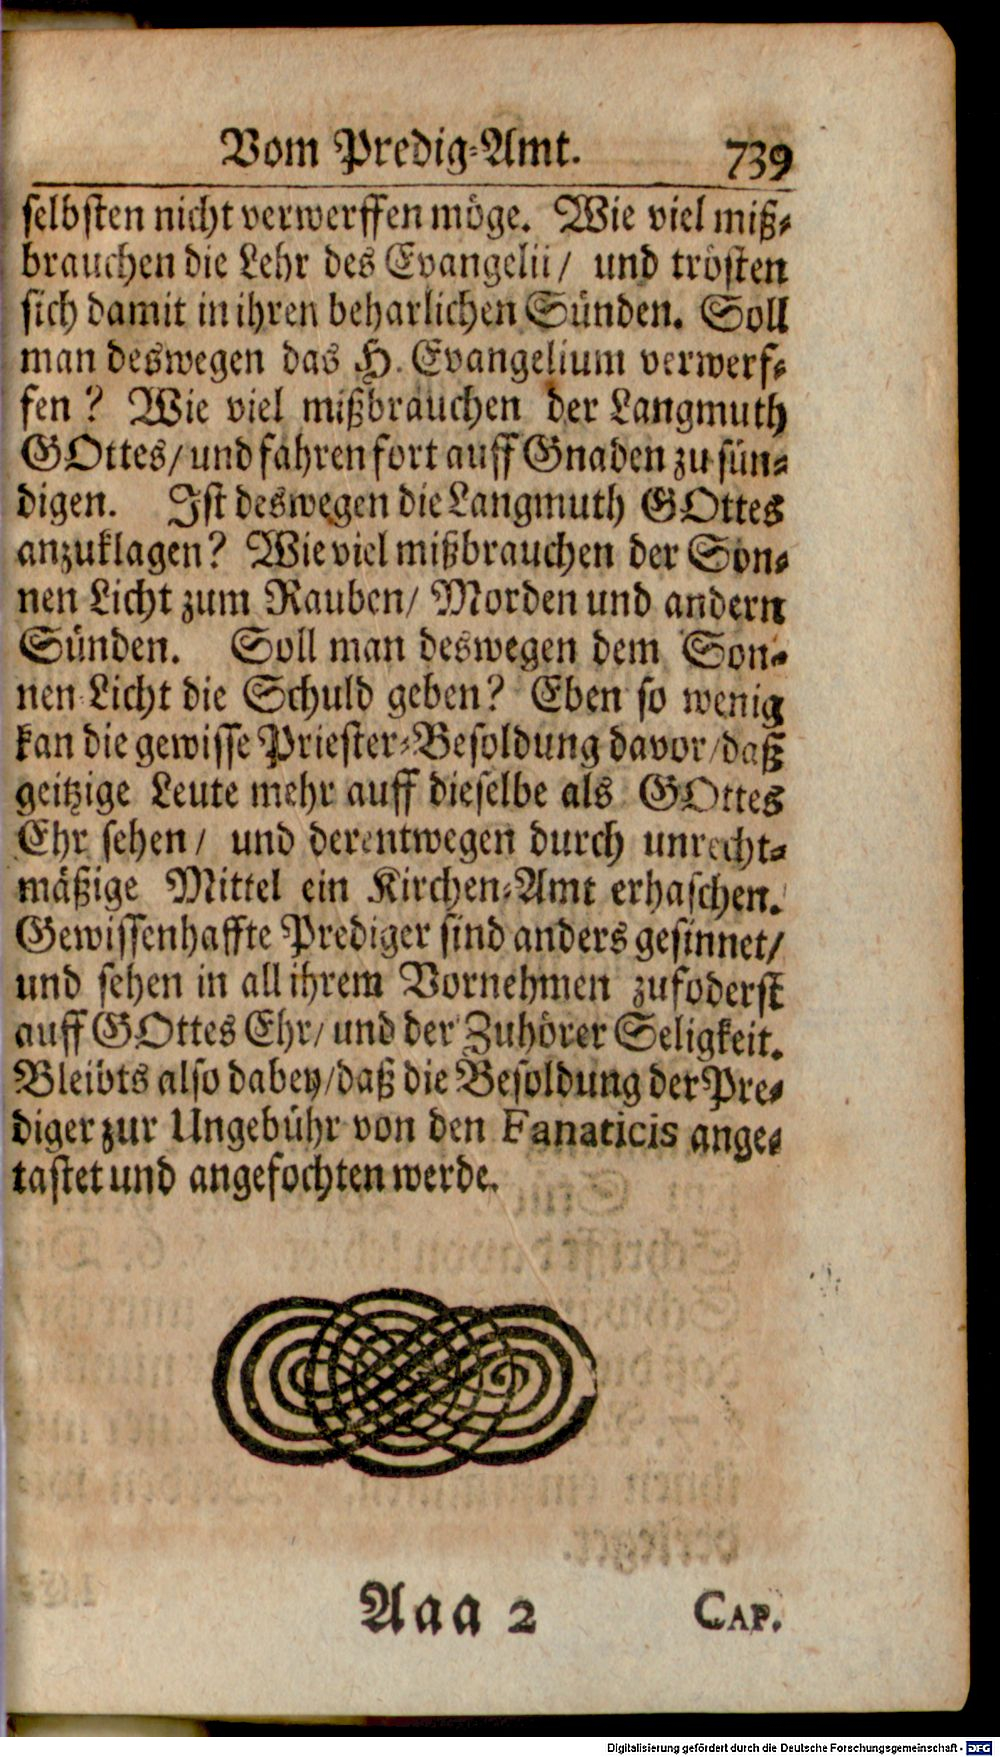 Vom Predig-Amt. 739
selbsten nicht verwerffen möge. Wie viel miß-
brauchen die Lehr des Evangelii/ und trösten
sich damit in ihren beharlichen Sünden. Soll
man deswegen das H. Evangelium verwerf-
fen? Wie viel mißbrauchen der Langmuth
GOttes/ und fahren fort auff Gnaden zu sün-
digen. Ist deswegen die Langmuth GOttes
anzuklagen? Wie viel mißbrauchen der Son-
nen Licht zum Rauben/ Morden und andern
Sünden. Soll man deswegen dem Son-
nen-Licht die Schuld geben? Eben so wenig
kan die gewisse Priester-Besoldung davor/daß
geitzige Leute mehr auff dieselbe als GOttes
Ehr sehen/ und derentwegen durch unrecht-
mäßige Mittel ein Kirchen-Amt erhaschen.
Gewissenhaffte Prediger sind anders gesinnet/
und sehen in all ihrem Vornehmen zufoderst
auff GOttes Ehr/ und der Zuhörer Seligkeit.
Bleibts also dabey/daß die Besoldung der Pre-
diger zur Ungebühr von den Fanaticis ange-
tastet und angefochten werde.
Aaa 2 CAP.
Digitalisierung gefördert durch die Deutsche Forschungsgemeinschaft - DFG